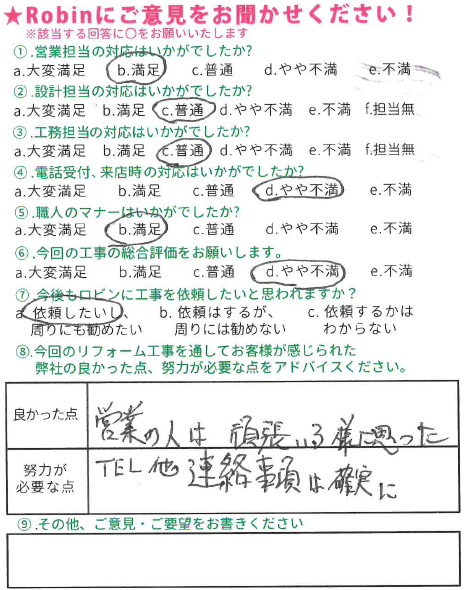 ★Robinにご意見をお聞かせください！
※該当する回答に〇をお願いいたします
①.営業担当の対応はいかがでしたか?
a.大変満足 b.満足 c.普通 d.やや不満 e.不満
②.設計担当の対応はいかがでしたか?
a.大変満足 b.満足 c.普通 d.やや不満 e.不満 f.担当無
③.工務担当の対応はいかがでしたか?
a.大変満足 b.満足 c.普通 d.やや不満 e.不満 f.担当無
④.電話受付、来店時の対応はいかがでしたか?
a.大変満足 b.満足 c.普通 d.やや不満 e.不満
⑤.職人のマナーはいかがでしたか?
a.大変満足 b.満足 c.普通 d.やや不満 e.不満
⑥.今回の工事の総合評価をお願いします。
a.大変満足 b.満足 c.普通 d.やや不満 e.不満
⑦.今後もロビンに工事を依頼したいと思われますか？
a.依頼したいし、 b.依頼はするが、 c.依頼するかは
周りにも勧めたい 周りには勧めない わからない
⑧.今回のリフォーム工事を通してお客様が感じられた
弊社の良かった点、努力が必要な点をアドバイスください。
良かった点 営業の人は頑張いる様に思った
努力が
必要な点 TEL他の連絡事項は確実に
⑨.その他、ご意見・ご要望をお書きください